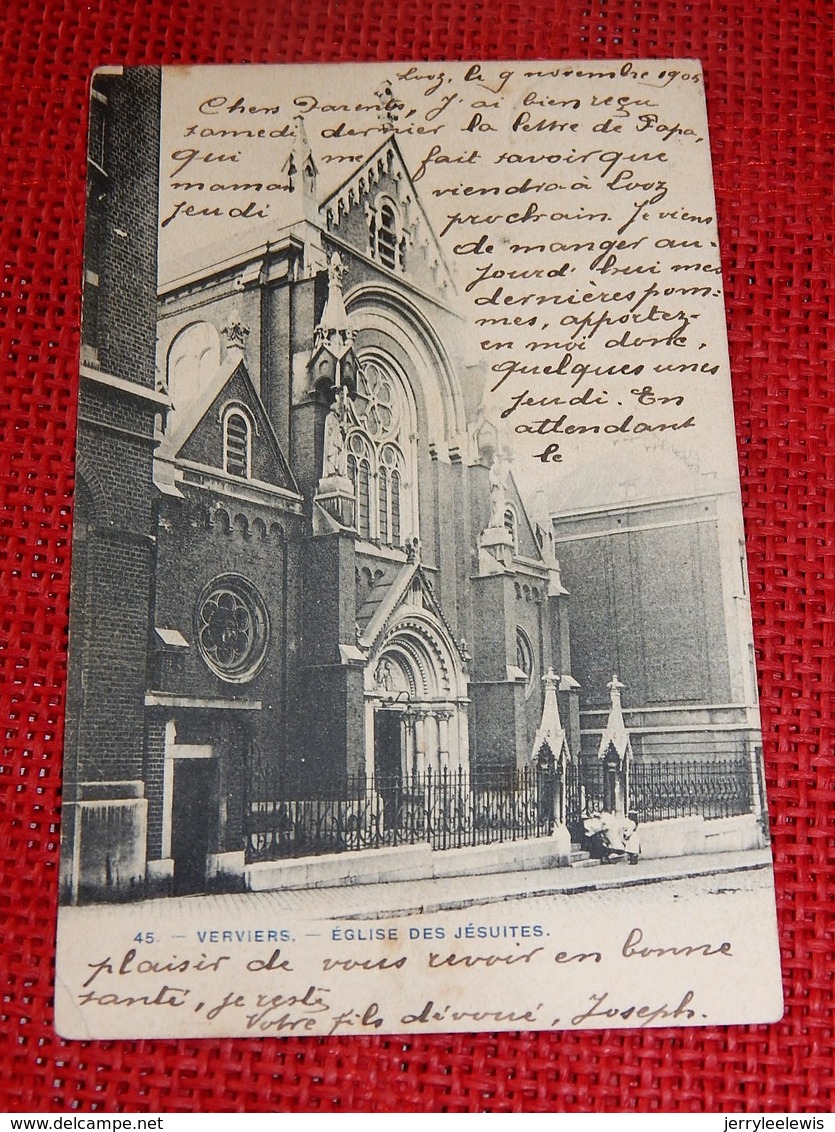 Looz, le 9 novembre 1905
Chers Parents, J'ai bien reçu
samedi dernier la lettre de Papa,
qui me fait savoir que
maman viendra à Looz
jeudi prochain. Je viens
de manger au=
jourd'hui mes
dernières pom=
mes, apportez-
en moi donc,
quelques unes
jeudi. En
attendant
le
45. — VERVIERS. — ÉGLISE DES JÉSUITES.
plaisir de vous revoir en bonne
santé, je reste
Votre fils dévoué, Joseph.
jerryleelewis